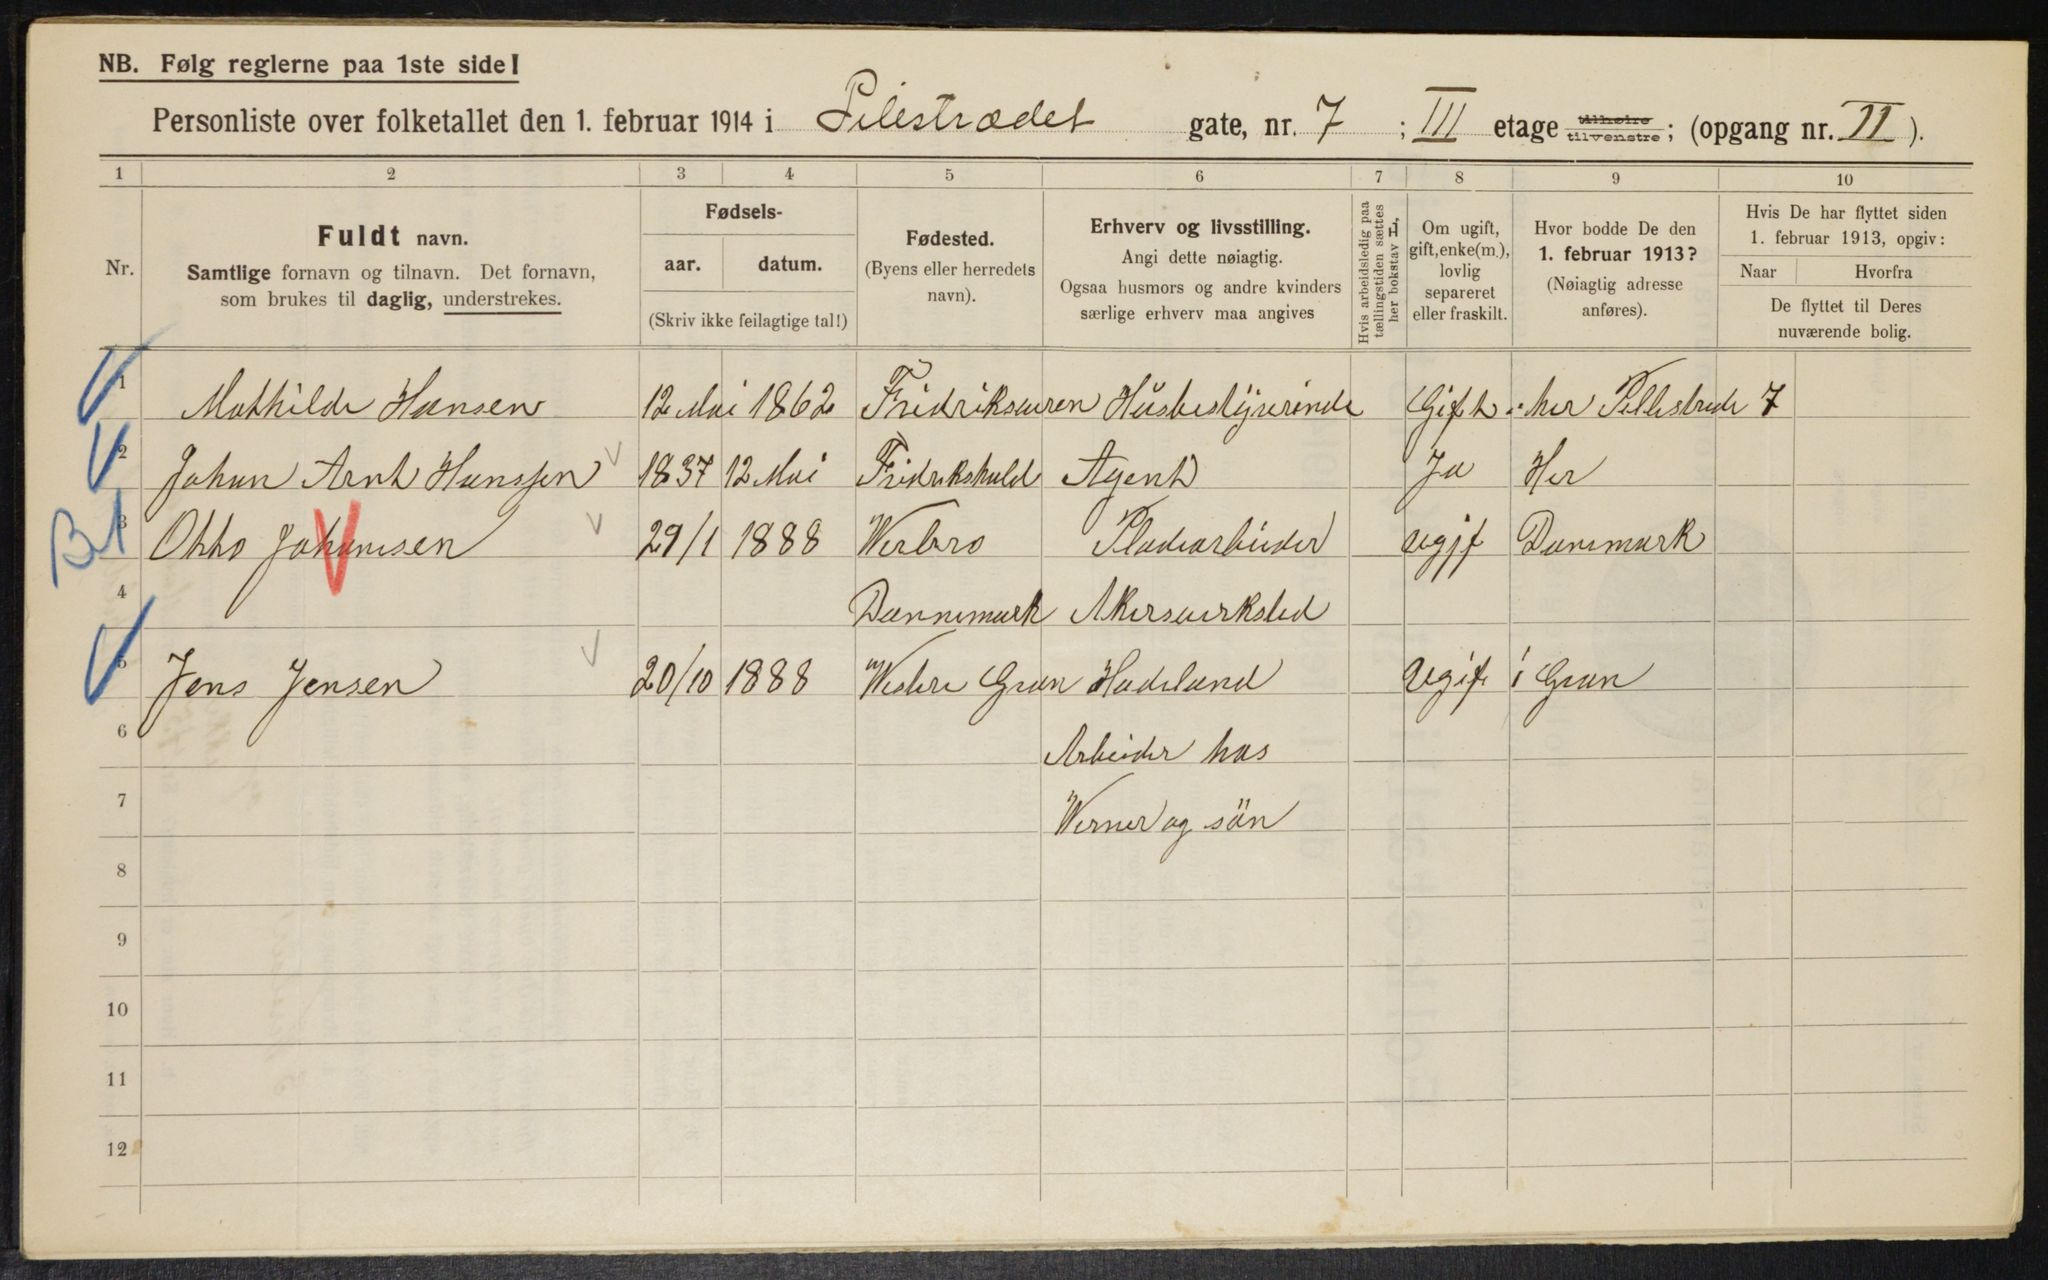 NB. Følg reglerne paa 1ste side!
Personliste over folketallet den 1. februar 1914 i Pilestrædet gate, nr. 7 ; III etage tilhøire tilvenstre ; (opgang nr. II ).
1 2 3 4 5 6 7 8 9 10
Nr.
Fuldt navn.
Samtlige fornavn og tilnavn. Det fornavn,
som brukes til daglig, understrekes.
Fødsels-
aar. datum.
(Skriv ikke feilagtige tal!)
Fødested.
(Byens eller herredets
navn).
Erhverv og livsstilling.
Angi dette nøiagtig.
Ogsaa husmors og andre kvinders
særlige erhverv maa angives
Hvis arbeidsledig paa
tællingstiden sættes
her bokstav L,
Om ugift,
gift, enke(m.),
lovlig
separeret
eller fraskilt.
Hvor bodde De den
1. februar 1913?
(Nøiagtig adresse
anføres).
Hvis De har flyttet siden
1. februar 1913, opgiv:
Naar Hvorfra
De flyttet til Deres
nuværende bolig.
1 Mathilde Hansen 12 Mai 1862 Husbestyrerinde Gift her 7
2 Johan Arnt Hanssen 1837 12 Mai Fridrikshald Agent Ja Her
3 Otto Johannsen 29/1 1888 ugif Danemark
4 Dannemark Akersverksted
5 Jens Jensen 20/10 1888 Vestre Gran Hadeland Ugif i Gran
6 Arbeider hos
7 Werner og sön
8
9
10
11
12